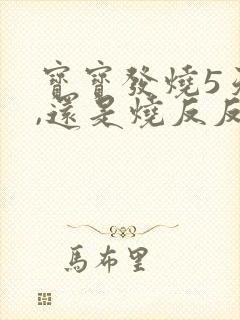 寶寶發燒5
,還是燒反反
馬布里